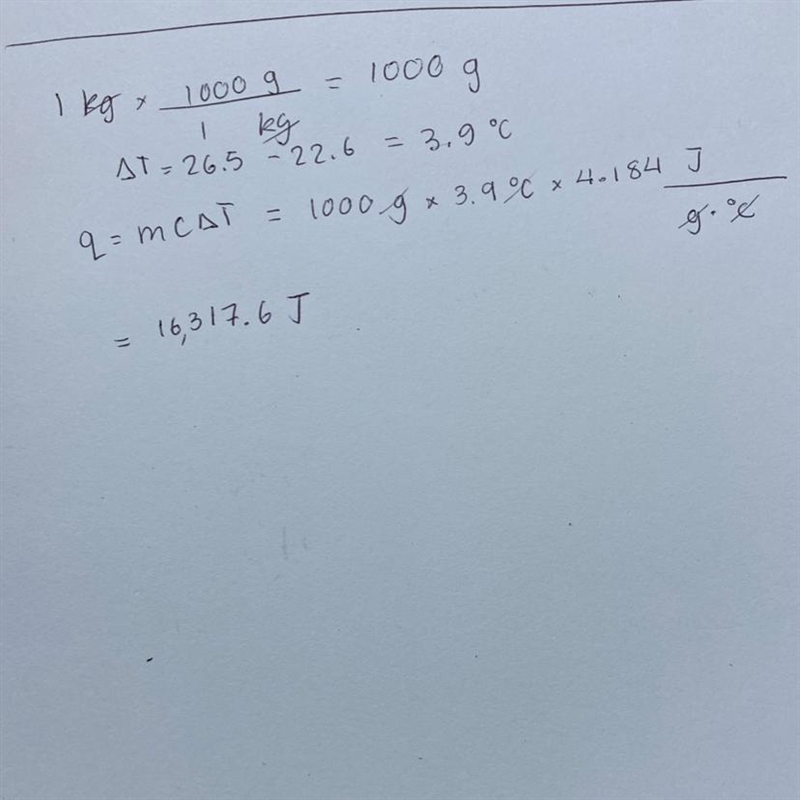 1 kg × 1000 g / 1 kg = 1000 g
ΔT = 26.5 - 22.6 = 3.9 °C
q = mCΔT = 1000 g × 3.9 °C × 4.184 J / g · °C
= 16,317.6 J